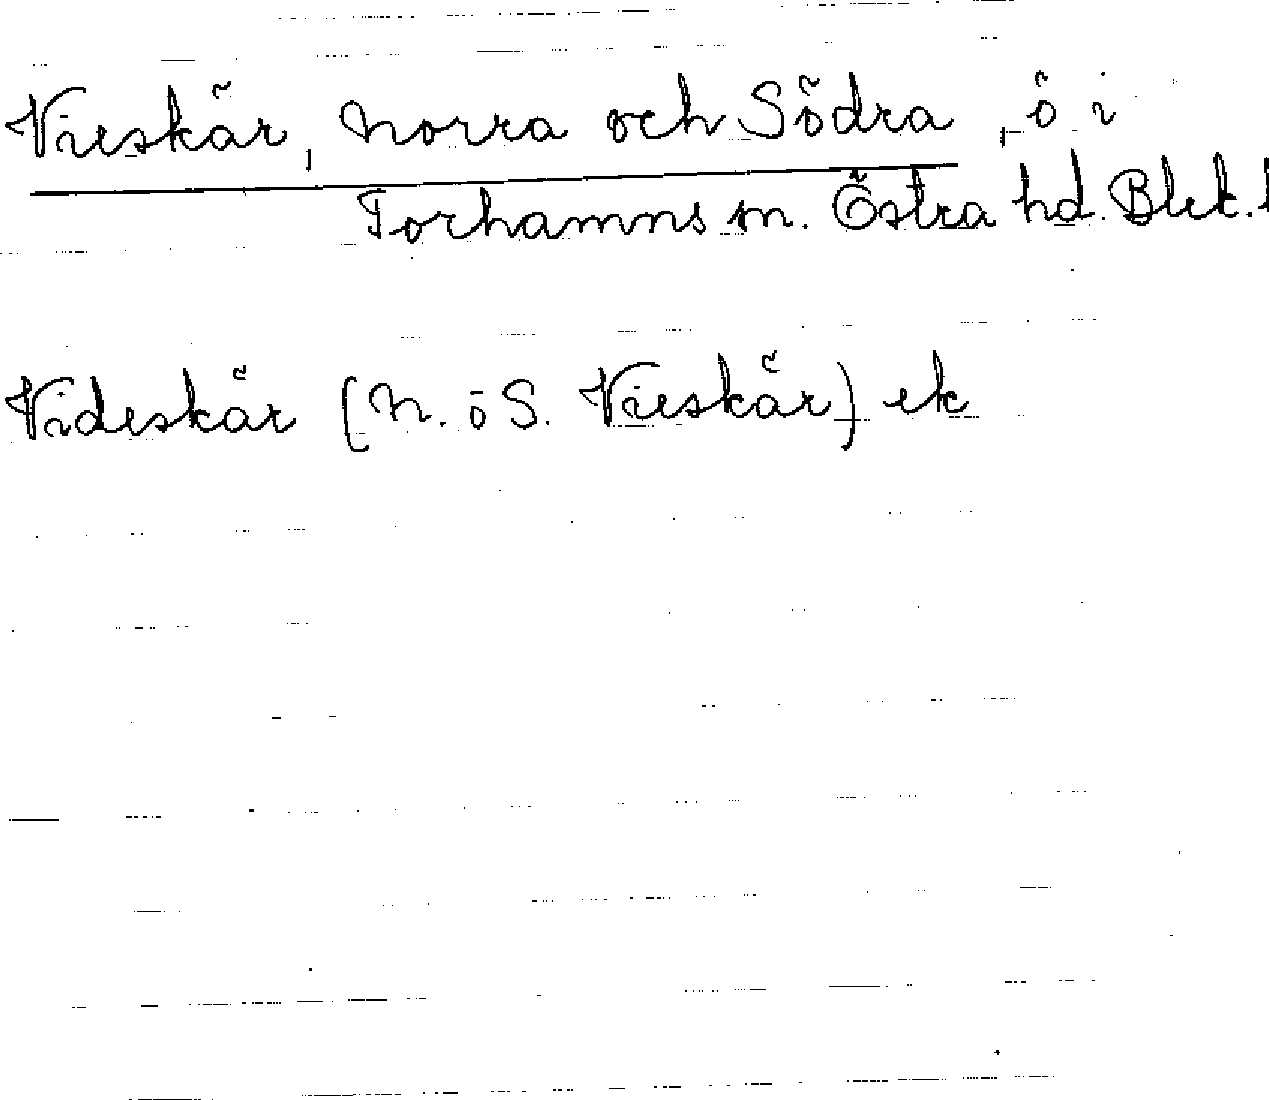 Vieskär, Norra och Södra, ö i
Torhamns sn. Östra hd. Blek. l
Videskär (N. o S. Vieskär) ek